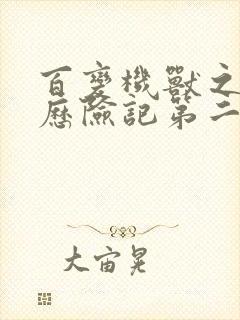 百变機獸之
歷險記第二
大宙晃